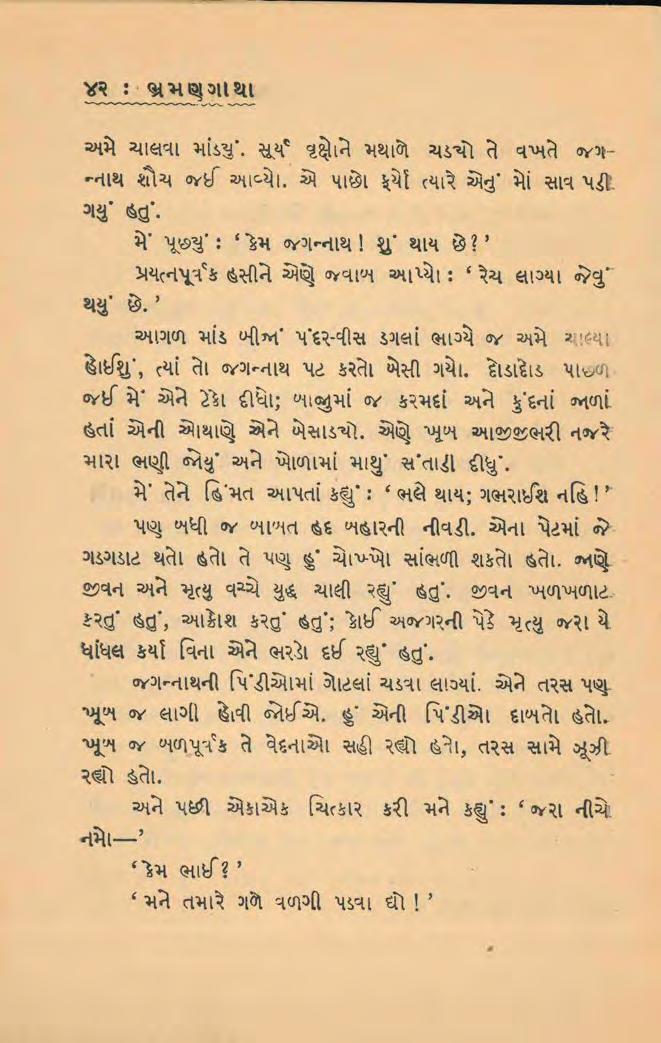 ૪૨ : ભ્રમણગાથા
અમે ચાલવા માંડયું. સૂર્ય વૃક્ષોને મથાળે ચડચો તે વખતે જગ-
ન્નાથ શૌચ જઈ આવ્યો. એ પાછો ફર્યો ત્યારે એનું મોં સાવ પડી
ગયું હતું.
મેં પૂછયું : ‘ કેમ જગન્નાથ ! શું થાય છે ? ’
પ્રયત્નપૂર્વક હસીને એણે જવાબ આપ્યો : ‘ રેચ લાગ્યા જેવું
થયું છે. ’
આગળ માંડ બીજાં પંદર-વીસ ડગલાં ભાગ્યે જ અમે ચાલ્યા
હોઈશું, ત્યાં તો જગન્નાથ પટ કરતો બેસી ગયો. દોડાદોડ પાછળ
જઈ મેં એને ટેકો દીધો; બાજુમાં જ કરમદાં અને કુંદનાં જાળાં
હતાં એની ઓથાણે એને બેસાડચો. એણે ખૂબ આજીજીભરી નજરે
મારા ભણી જોયું અને ખોળામાં માથું સંતાડી દીધું.
મેં તેને હિંમત આપતાં કહ્યું : ‘ ભલે થાય; ગભરાઈશ નહિ ! ’
પણ બધી જ બાબત હદ બહારની નીવડી. એના પેટમાં જે
ગડગડાટ થતો હતો તે પણ હું ચોખ્ખો સાંભળી શકતો હતો. જાણે
જીવન અને મૃત્યુ વચ્ચે યુદ્ધ ચાલી રહ્યું હતું. જીવન ખળખળાટ
કરતું હતું, આક્રોશ કરતું હતું; કોઈ અજગરની પેઠે મૃત્યુ જરા યે
ધાંધલ કર્યા વિના એને ભરડો દઈ રહ્યું હતું.
જગન્નાથની પિંડીઓમાં ગોટલાં ચડવા લાગ્યાં. એને તરસ પણ
ખૂબ જ લાગી હોવી જોઈએ. હું એની પિંડીઓ દાબતો હતો.
ખૂબ જ બળપૂર્વક તે વેદનાઓ સહી રહ્યો હતો, તરસ સામે ઝૂઝી
રહ્યો હતો.
અને પછી એકાએક ચિત્કાર કરી મને કહ્યું : ‘ જરા નીચે
નમો—’
‘ કેમ ભાઈ ? ’
‘ મને તમારે ગળે વળગી પડવા દ્યો ! ’